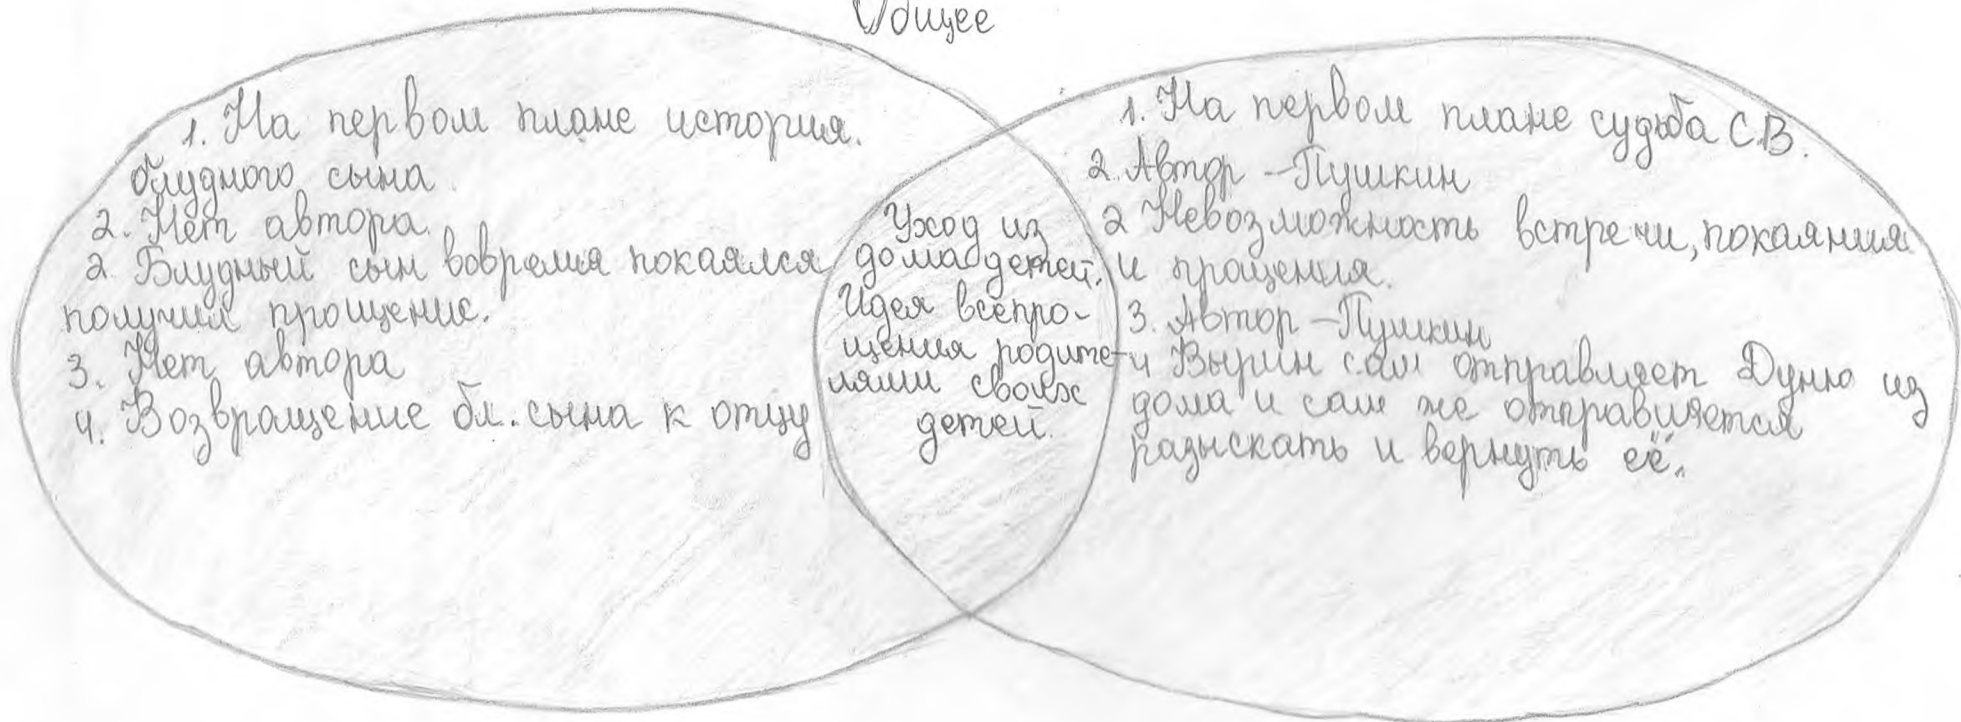 Общее
1. На первом плане история.
блудного сына
2. Нет автора.
2 Блудный сын вовремя покаялся
получил прощение.
3. Нет автора
4. Возвращение бл. сына к отцу
Уход из
дома детей.
Идея всепро-
щения родите-
лями своих
детей.
1. На первом плане судьба С.В.
2. Автор – Пушкин
2 Невозможность встречи, покаяния
и прощения.
3. Автор – Пушкин
4 Вырин сам отправляет Дуню из
дома и сам же отправляется
разыскать и вернуть её.